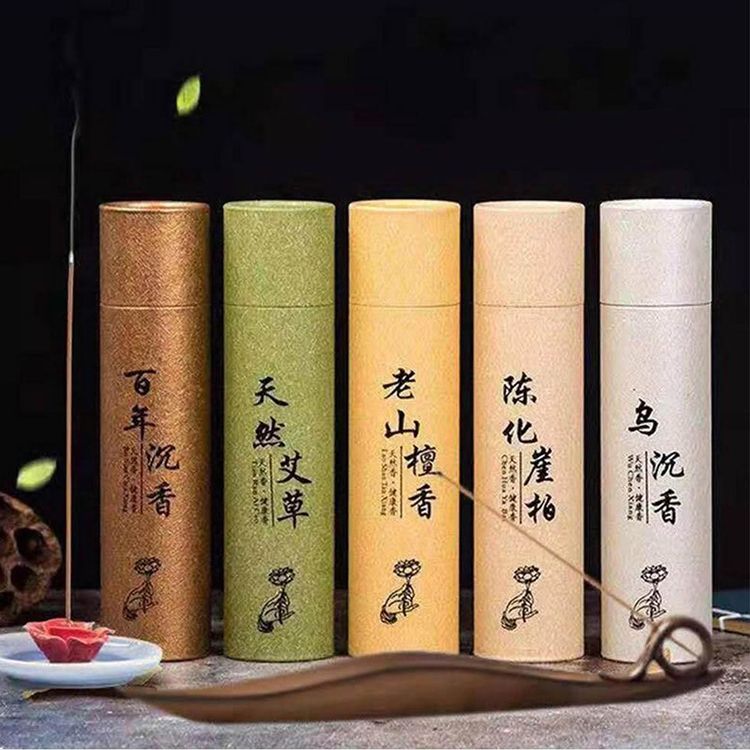 百年沉香
天然香·健康香
天然艾草
天然香·健康香
老山檀香
天然香·健康香
Lao Shan Tan Xiang
陈化崖柏
天然香·健康香
Chen Hua Ya Bai
乌沉香
天然香·健康香
Wu Chen Xiang